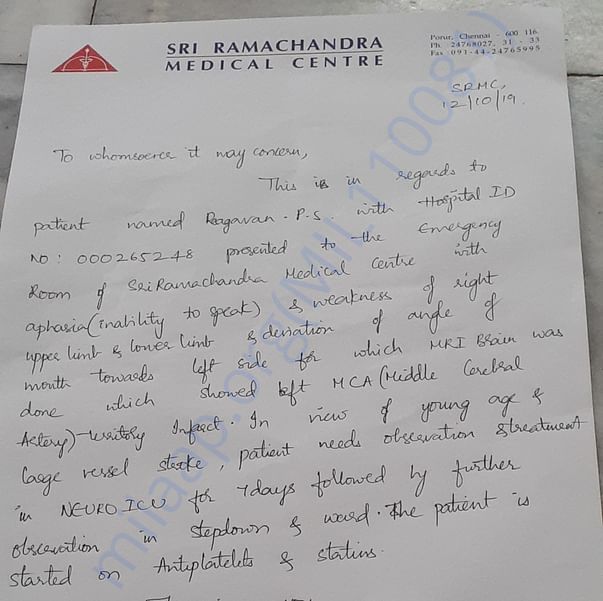 SRI RAMACHANDRA
MEDICAL CENTRE
Porur, Chennai - 600 116.
Ph : 24768027, 31 - 33
Fax : 091-44-24765995
SRMC,
12/10/19.
To whomsoever it may concern,
This is in regards to
patient named Ragavan. P.S. with Hospital ID
NO: 000265248 presented to the Emergency
Room of Sri Ramachandra Medical Centre with
aphasia (inability to speak) & weakness of right
upper limb & lower limb & deviation of angle of
mouth towards left side for which MRI Brain was
done which showed left MCA (Middle Cerebral
Artery)-territory Infarct. In view of young age &
large vessel stroke, patient needs observation & treatment
in NEURO ICU for 7 days followed by further
observation in stepdown & ward. The patient is
started on Antiplatelets & statins.